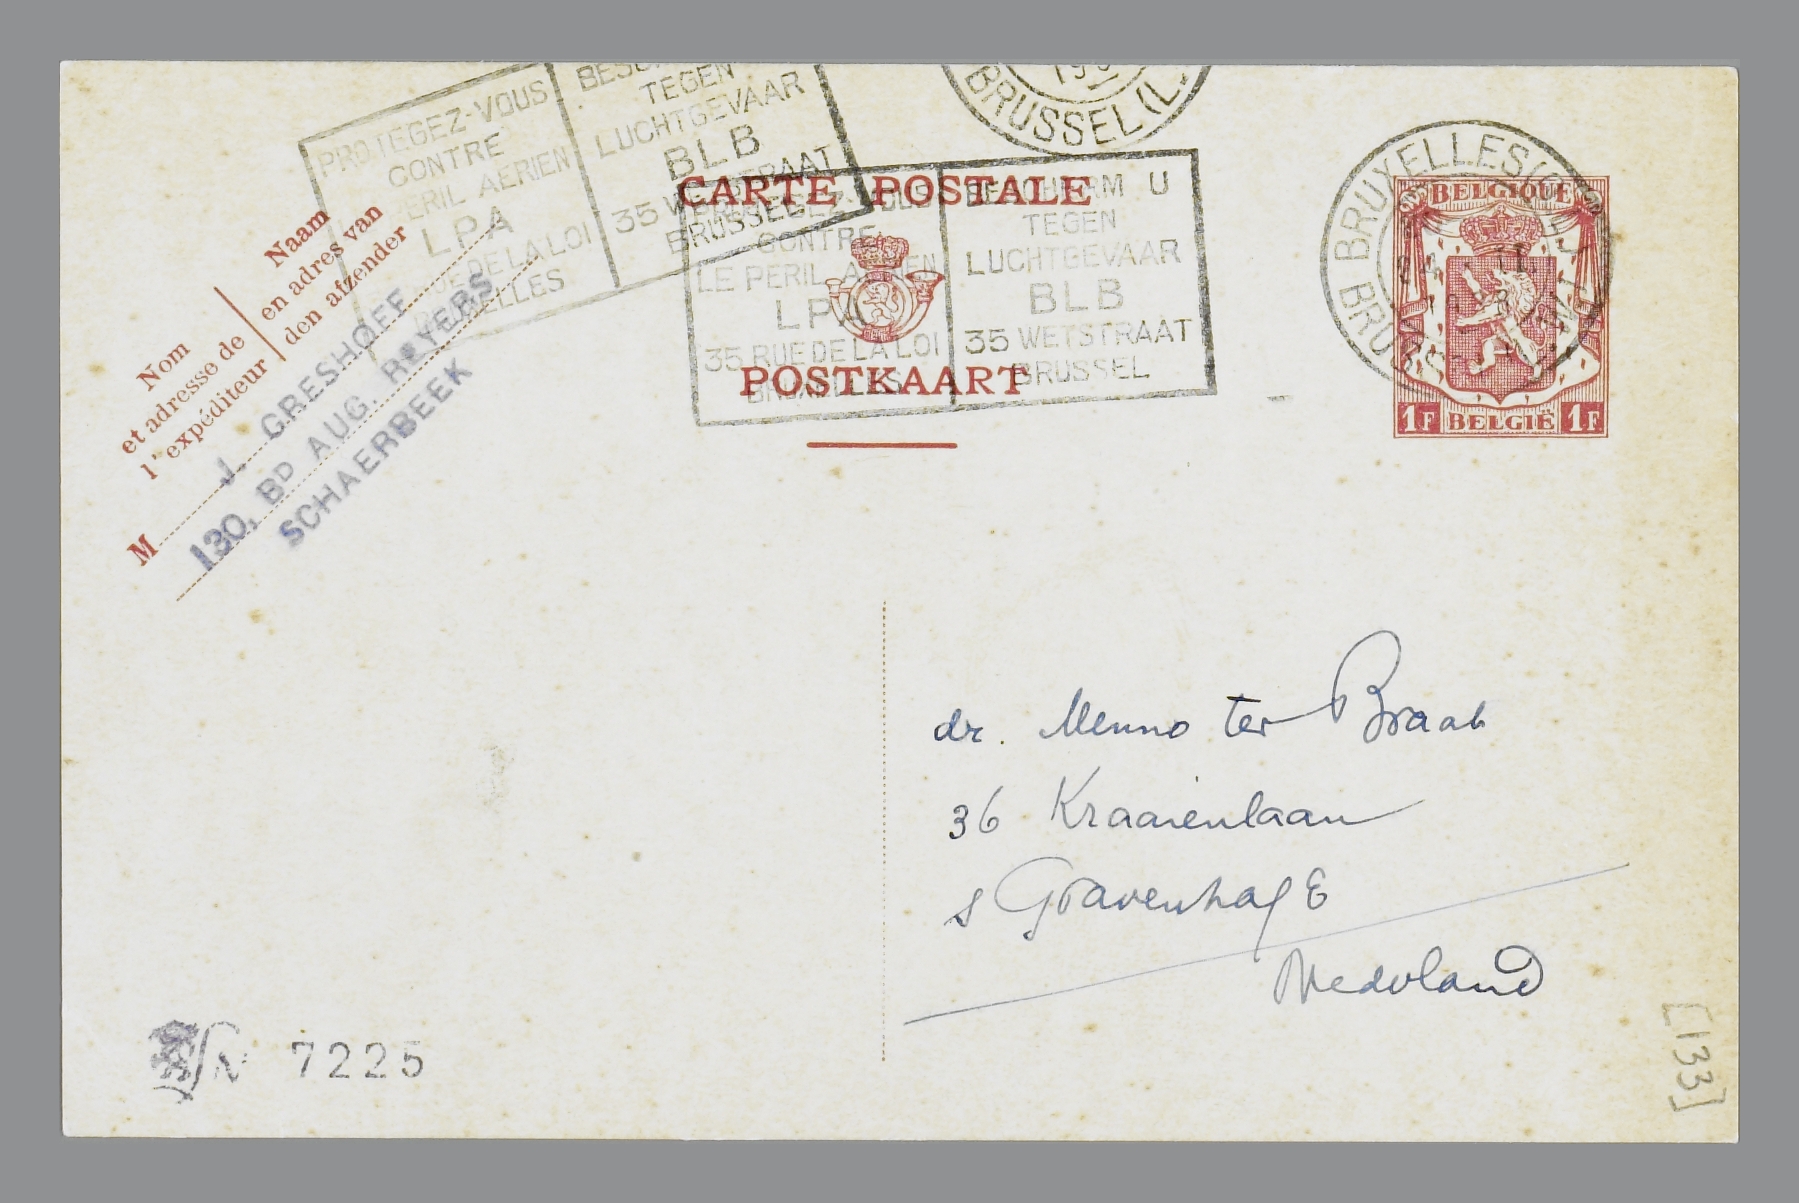 PROTEGEZ-VOUS
CONTRE
PERIL AERIEN
LPA
RUE DE LA LOI
BRUXELLES
TEGEN
LUCHTGEVAAR
BLB
35 WETSTRAAT
BRUSSEL
BRUSSEL (L.
CARTE POSTALE
POSTKAART
CONTRE
LE PERIL AERIEN
LPA
35 RUE DE LA LOI
BRUXELLES
BESCHERM U
TEGEN
LUCHTGEVAAR
BLB
35 WETSTRAAT
BRUSSEL
BRUXELLES
BELGIQUE
1F BELGIË 1F
Naam
en adres van
den afzender
Nom
et adresse de
l'expéditeur
M
J. GRESHOFF
130, BD AUG. REYERS
SCHAERBEEK
dr. Menno ter Braak
36 Kraaienlaan
s Gravenhage
Nederland
N 7225
[133]